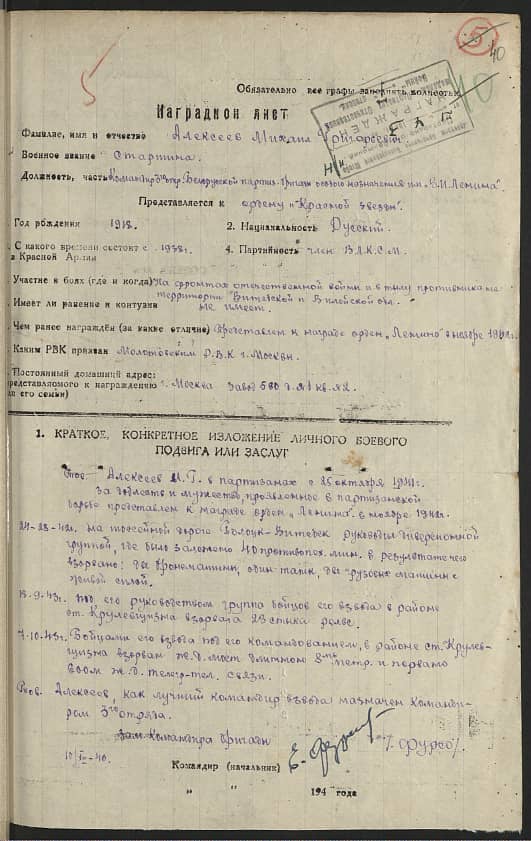 5
40
Обязательно все графы заполнять полностью
10
Наградной лист
Фамилие, имя и отчество Алексеев Михаил Григорьевич
Военное звание Старшина.
Должность, часть Командир 3го отр. Белорусской партиз. бригады особого назначения им. В.И. Ленина"
Представляется к ордену "Красной звезды".
Год рбждения 1918. 2. Национальность Русский.
С какого времени состоит с 1938г. 4. Партийность член В.Л.К.С.М.
в Красной Армии
Участие в боях (где и когда) На фронтах отечественной войны и в тылу противника на
территории Витебской и Вилейской обл.
Имеет ли ранение и контузии не имеет.
Чем ранее награждён (за какие отличие) Представлен к награде орден "Ленина" в ноябре 1942г.
Каким РВК призван Молотовским Р.В.К г. Москвы.
Постоянный домашний адрес:
представляемого к награждению г. Москва Завод 580 д. №1 кв. №2.
и его семьи)
1. КРАТКОЕ, КОНКРЕТНОЕ ИЗЛОЖЕНИЕ ЛИЧНОГО БОЕВОГО
ПОДВИГА ИЛИ ЗАСЛУГ
Тов. Алексеев М.Г. в партизанах с 25 октября 1941г.
За доблесть и мужество, проявленное в партизанской
борьбе представлен к награде орден "Ленина". в ноябре 1942г.
на шоссейной дороге Полоцк-Витебск руководил диверсионной
группой, где было заложено 40 противопех. мин. в результате чего
взорвано: две бронемашины, один танк, две грузовые машины с
живой силой.
13-9-43г. Под его руководством группа бойцов его взвода в районе
ст. Крулевщизна взорвала 23 стыка рельс.
7-10-43г. Бойцами его взвода под его командованием, в районе ст. Крулев-
щизна взорван ж.д. мост длиною 8 метр. и порвано
800м ж.д. телегр-тел. связи.
Тов. Алексеев, как лучший командир взвода назначен команди-
ром 3го отряда.
Зам командира бригады
Командир (начальник) /Фурсо/.
" " 194 года